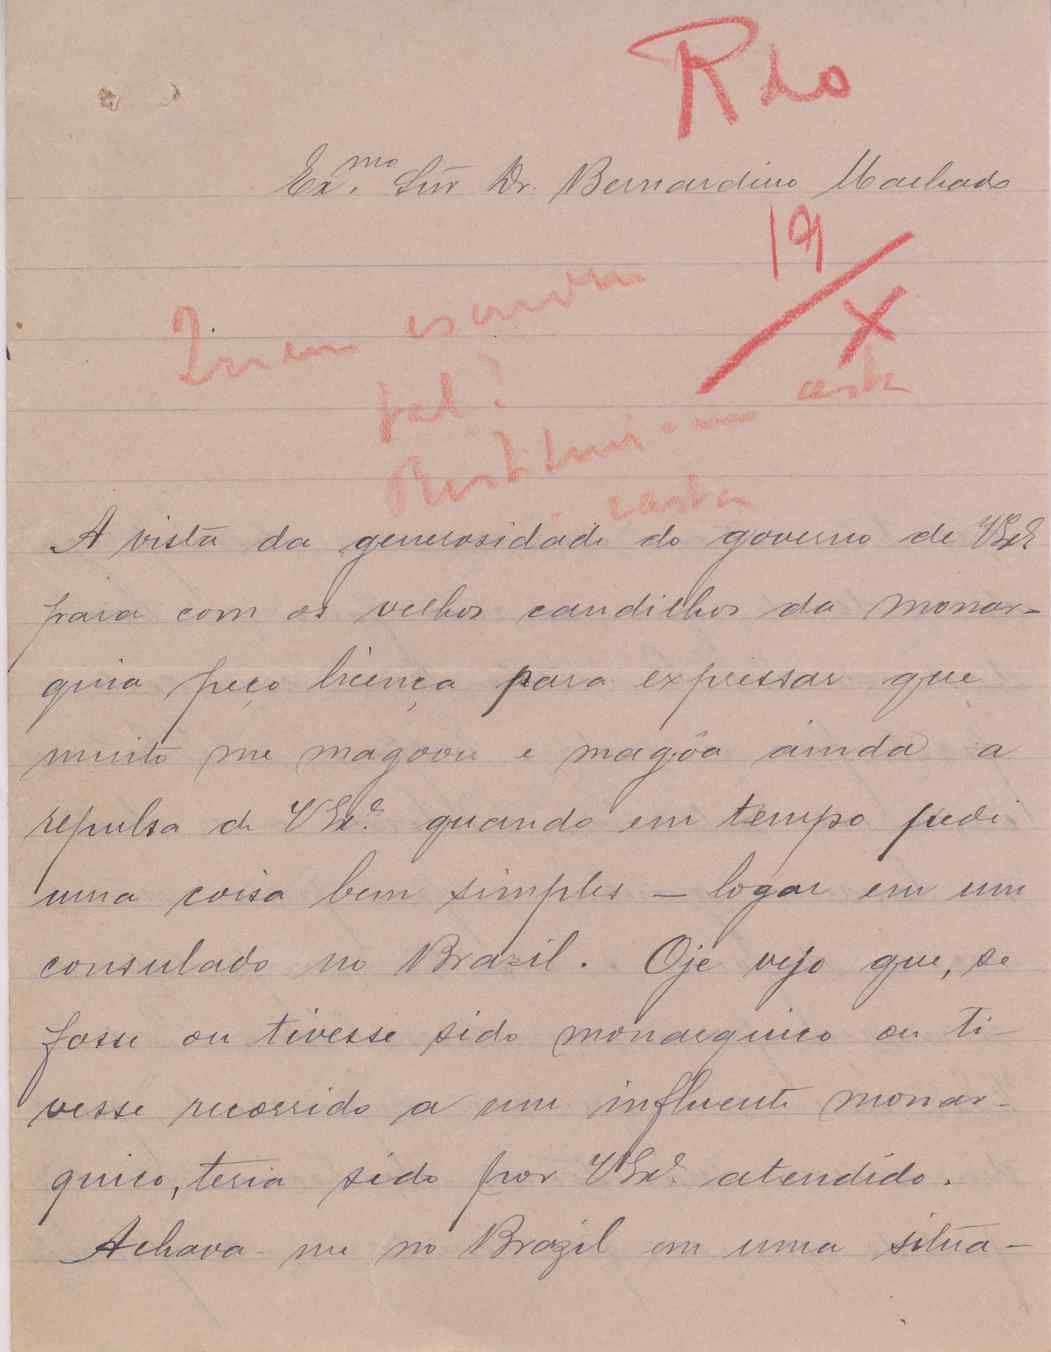 Rdo
Ex.mo Snr Dr. Bernardino Machado
19/X
Quem escreveu
tal?
esta
Restitui-se
carta
A vista da generosidade do governo de VExª
para com os velhos caudilhos da monar-
quia peço licença para expressar que
muito me magoou e magôa ainda a
repulsa de VExª quando em tempo pedi
uma coisa bem simples — logar em um
consulado no Brazil. Oje vejo que, se
fosse ou tivesse sido monarquico ou ti-
vesse recorrido a um influente monar-
quico, teria sido por VExª atendido.
Achava-me no Brazil em uma situa-